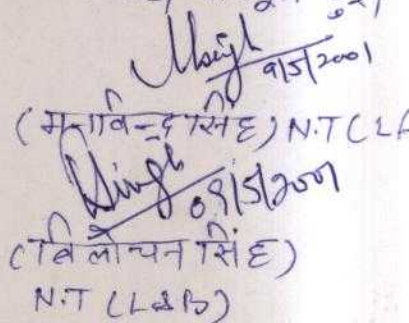 Msingh 9/5/2001
(मनविन्द्र सिंह) N.T (L
Singh 09/5/2001
(त्रिलोचन सिंह)
N.T (L&B)